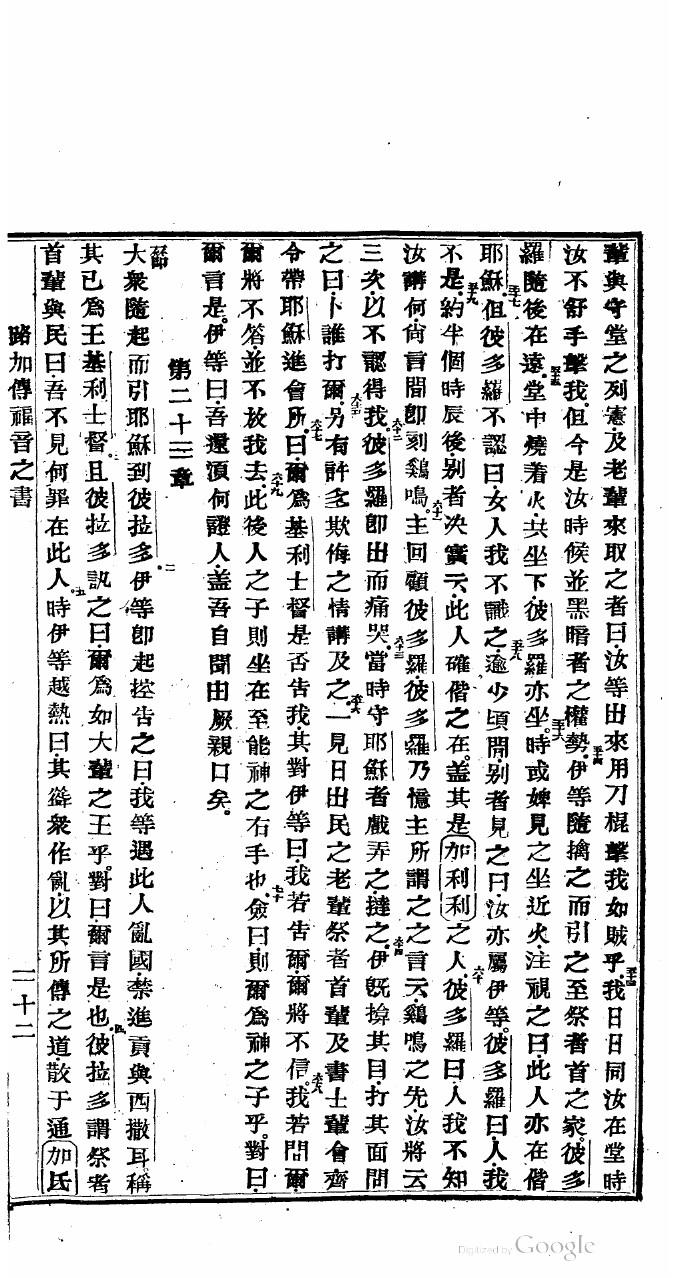 輩與守堂之列憲及老輩來取之者曰汝等出來用刀棍擊我如賊乎五十三我日日同汝在堂時
汝不舒手擊我但今是汝時候並黑暗者之權勢五十四伊等隨擒之而引之至祭者首之家彼多
羅隨後在遠五十五堂中燒着火共坐下彼多羅亦坐五十六時或婢見之坐近火注視之曰此人亦在偕
耶穌五十七但彼多羅不認曰女人我不識之五十八逾少頃間別者見之曰汝亦屬伊等彼多羅曰人我
不是五十九約半個時辰後別者決實云此人確偕之在蓋其是加利利之人六十彼多羅曰人我不知
汝講何尙言間卽刻鷄鳴六十一主回顧彼多羅彼多羅乃憶主所謂之之言云鷄鳴之先汝將云
三次以不認得我六十二彼多羅卽出而痛哭六十三當時守耶穌者戲弄之撻之六十四伊旣揜其目打其面問
之曰卜誰打爾六十五另有許多欺侮之情講及之六十六一見日出民之老輩祭者首輩及書士輩會齊
令帶耶穌進會所六十七曰爾爲基利士督是否告我其對伊等曰我若告爾爾將不信六十八我若問爾
爾將不答並不放我去六十九此後人之子則坐在至能神之右手也七十僉曰則爾爲神之子乎對曰
爾言是伊等曰吾還須何證人蓋吾自聞出厥親口矣
第二十三章
一節大衆隨起而引耶穌到彼拉多二伊等卽起控告之曰我等遇此人亂國禁進貢與西撒耳稱
其已爲王基利士督三且彼拉多訊之曰爾爲如大輩之王乎對曰爾言是也四彼拉多謂祭者
首輩與民曰吾不見何罪在此人五時伊等越熱曰其惹衆作亂以其所傳之道散于通加氏
路加傳福音之書
二十二
Digitized by Google